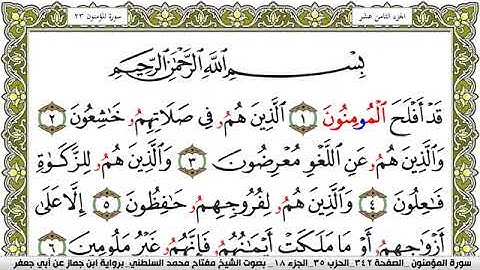 سورة المؤمنون ٢٣
الجزء الثامن عشر
بِسْمِ اللَّهِ الرَّحْمَٰنِ الرَّحِيمِ
قَدْ أَفْلَحَ الْمُومِنُونَ ١ الَّذِينَ هُمُۥ فِي صَلَاتِهِمُۥ خَاشِعُونَ ٢
وَالَّذِينَ هُمُۥ عَنِ اللَّغْوِ مُعْرِضُونَ ٣ وَالَّذِينَ هُمُۥ لِلزَّكَوٰةِ
فَاعِلُونَ ٤ وَالَّذِينَ هُمُۥ لِفُرُوجِهِمُۥ حَافِظُونَ ٥ إِلَّا عَلَىٰ
أَزْوَاجِهِمُۥ أَوْ مَا مَلَكَتْ أَيْمَانُهُمُۥ فَإِنَّهُمُۥ غَيْرُ مَلُومِينَ ٦
سورة المؤمنون _ الصفحة ٣٤٢_ الحزب ٣٥_ الجزء ١٨_ بصوت الشيخ مفتاح محمد السلطني_ برواية ابن جماز عن أبي جعفر